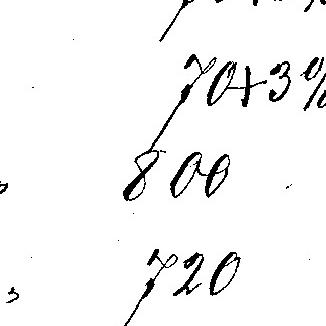 70+3%
" 800
" 720